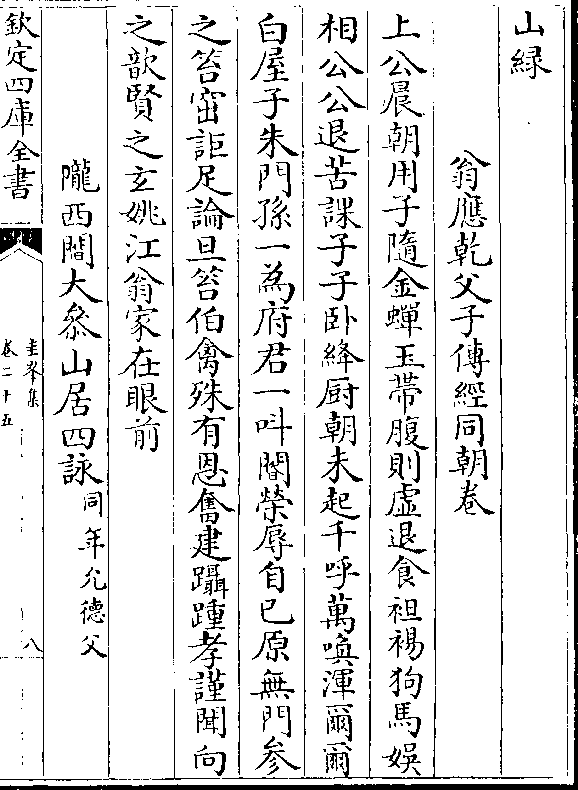 山緑
翁應乾父子傳經同朝卷
上公晨朝用子隨金蟬玉帶腹則虛退食袒裼狗馬娛
相公公退苦課子子卧絳厨朝未起千呼萬喚渾爾爾
白屋子朱門孫一為府君一叫閽榮辱自已原無門參
之笞密詎足論旦笞伯禽殊有恩奮建躡踵孝謹聞向
之歆賢之玄姚江翁家在眼前
隴西閻大叅山居四詠同年允德父
欽定四庫全書
圭峯集
卷二十五
八